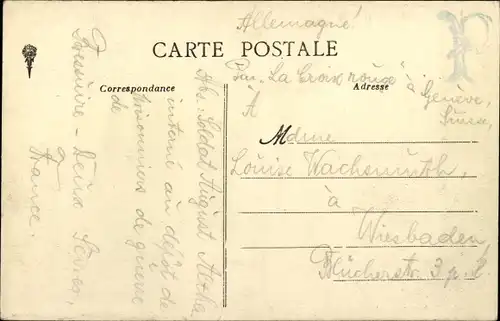 Allemagne!
P
CARTE POSTALE
Par "La Croix rouge" à
Correspondance
Adresse
Genève,
Suisse,
À
Mdme
Louise Wachsmuth,
à
Wiesbaden,
Blücherstr. 3 p. l
Abs. Soldat August
interné au dépôt de
prisonniers de guerre
de
Bressuire - Deux Sèvres,
France.